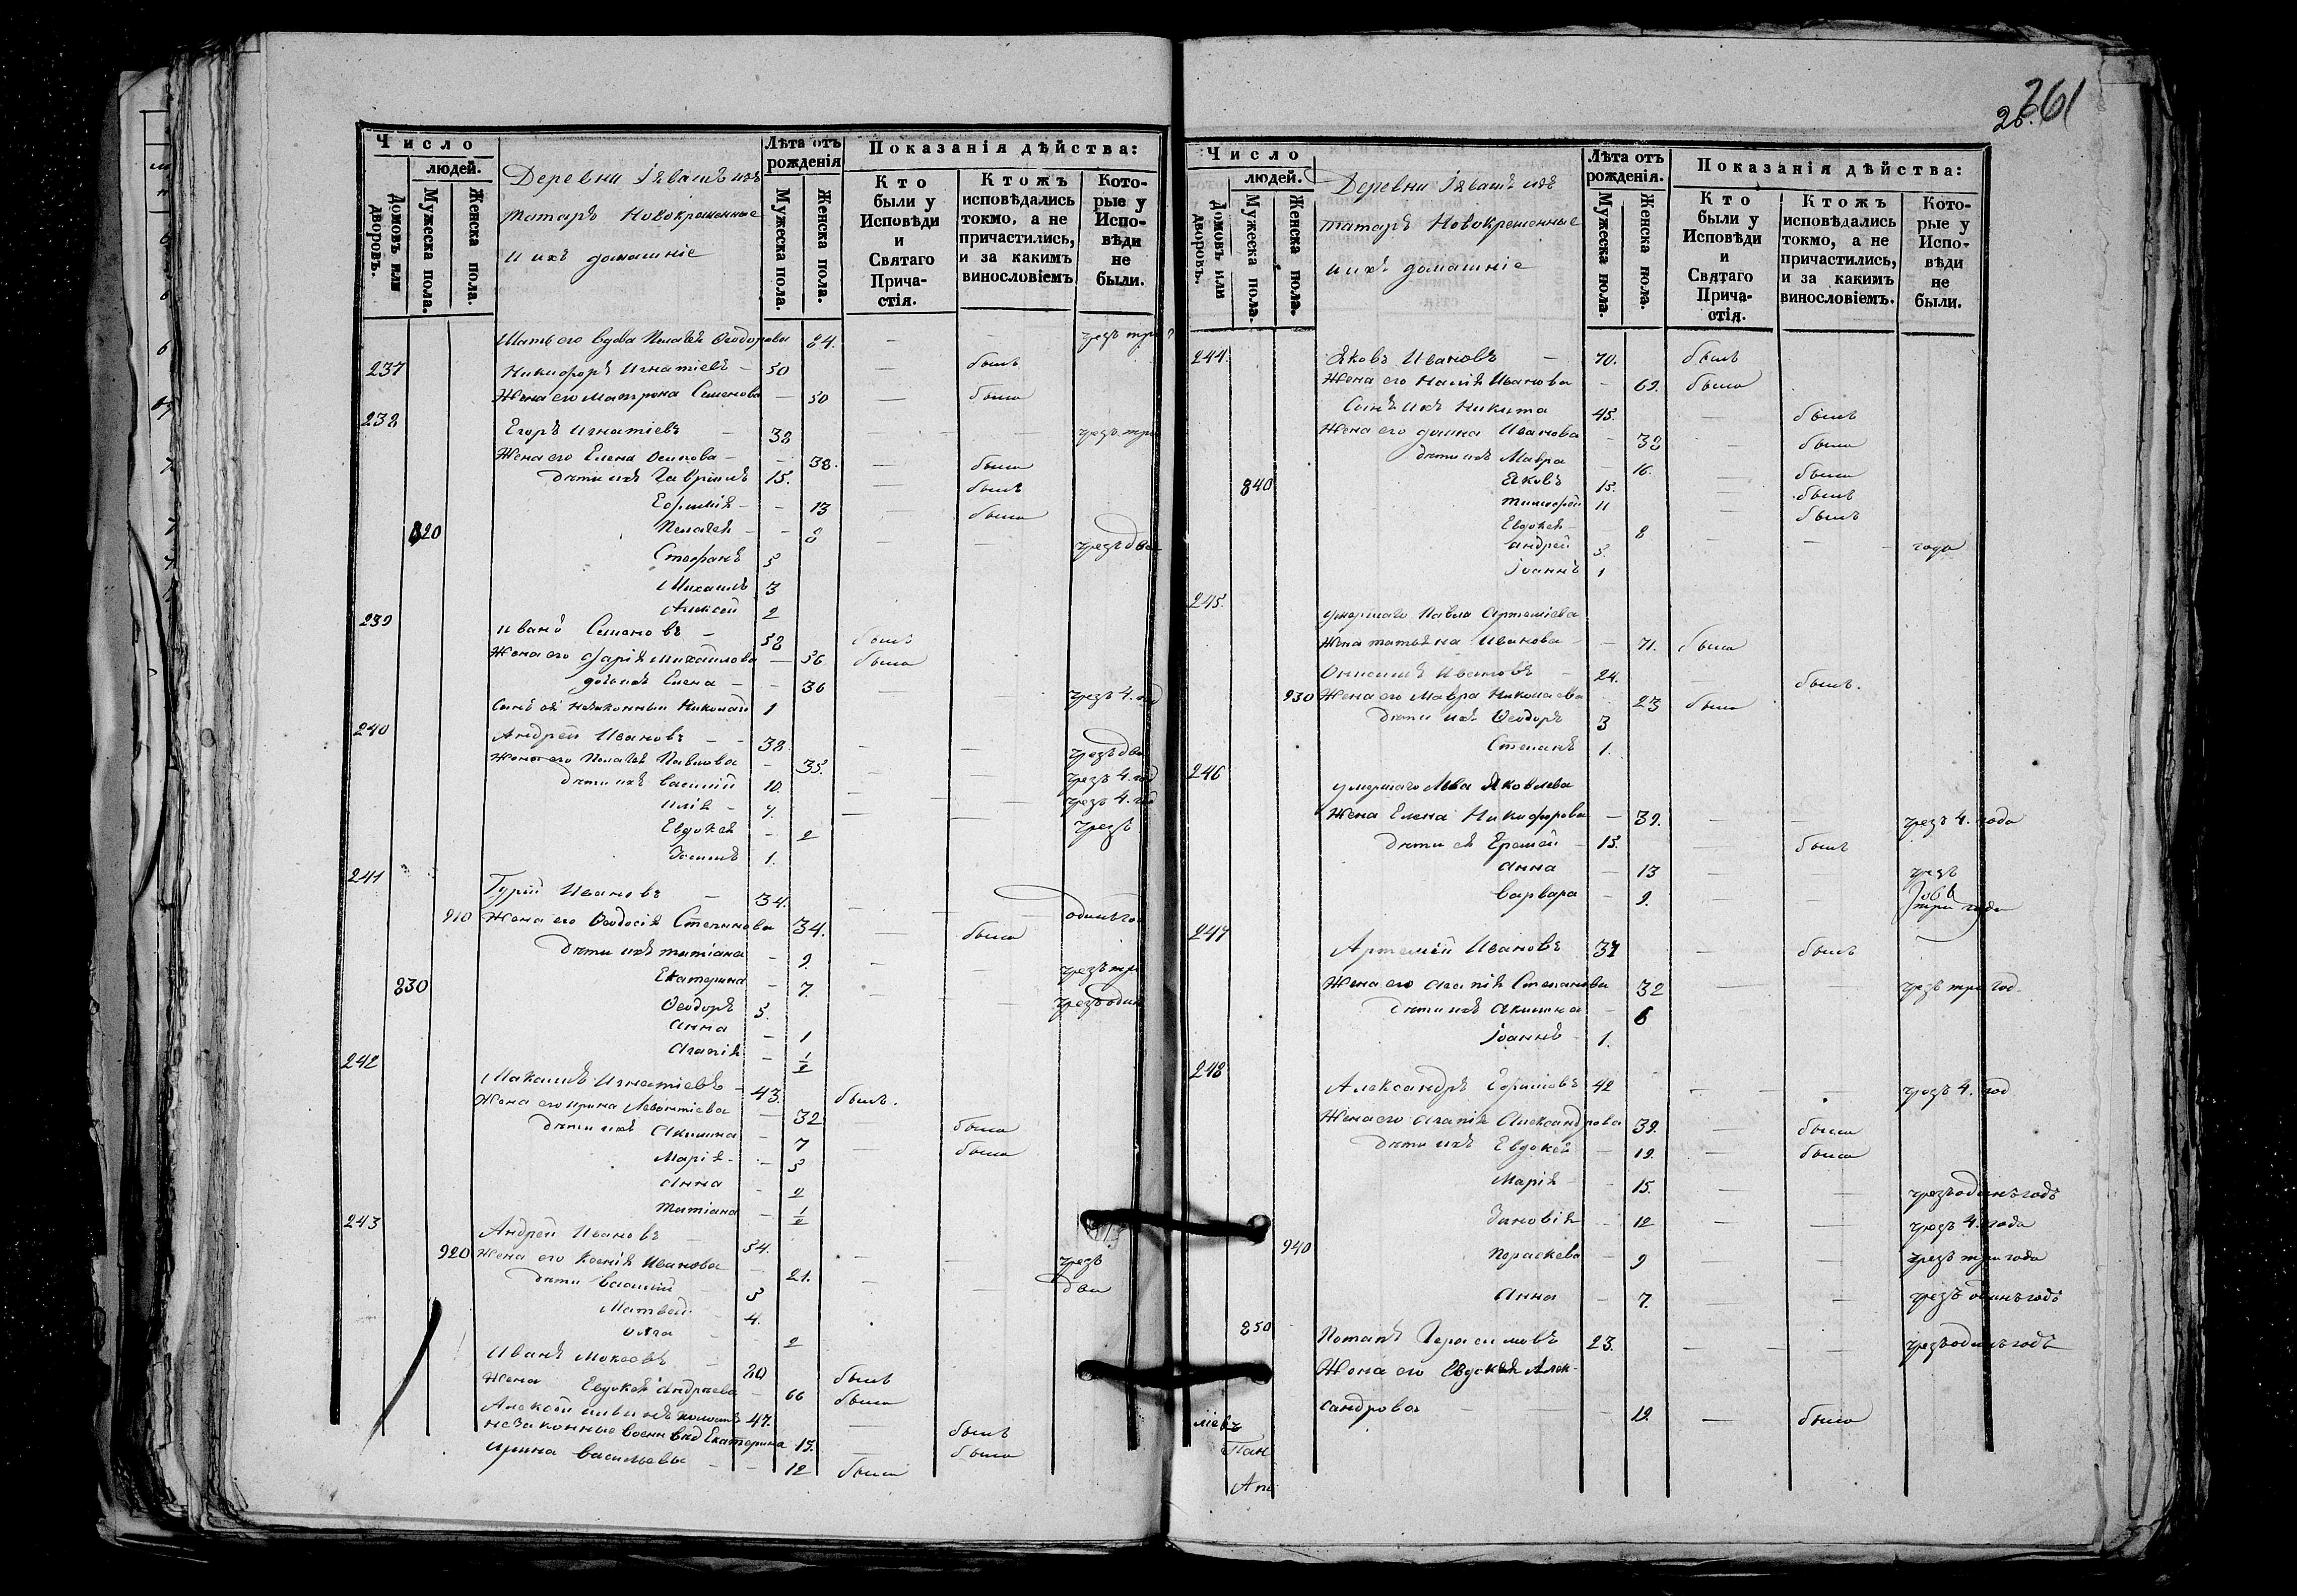 Число
людей.
Домовъ или дворовъ.
Мужеска пола.
Женска пола.
Деревни
татаръ Новокрещенные
и ихъ домашніе
Лѣта отъ рожденія
Мужеска пола.
Женска пола.
Показанія дѣйства:
Кто были у Исповѣди и Святаго Прича-стія.
Ктожъ исповѣдались токмо, а не причастились, и за какимъ винословіемъ
Кото-рые у Испо-вѣди не были.
Мать его вдова Пелагея Ѳеодорова 84. — — чрезъ три
237 Никифоръ Игнатіевъ — 50 — былъ
Жена его Матрона Семенова — 50 — была
238 Егоръ Игнатіевъ — 38 — — чрезъ три
Жена его Елена Осипова — — 38. — была
дѣти ихъ Гавріилъ 15. — былъ
— — 13 — была
820 Пелагея — — 8 — — чрезъ два
Стефанъ 5
Михаилъ 3
Алексѣй 2
239 Иванъ Семеновъ — 58 былъ
Жена его Дарія Михайлова — 56 была
дочь ихъ Елена — — 36 — — чрезъ 4. год
Сынъ ея незаконный Николай 1
240 Андрей Ивановъ — — 38 — — чрезъ два
Жена его Пелагея Павлова — 35. — — чрезъ 4. год
дѣти ихъ Василій 10. — — чрезъ 4. год
Илія — 7. — — чрезъ
Евдокея — 2
Осипъ 1.
241 Гурій Ивановъ — 34. — — одинъ год
910 Жена его Ѳеодосія Степанова 34. — была
дѣти ихъ Татіана — 9. — — чрезъ три
830 Екатерина — 7. — — чрезъ один
Ѳеодоръ 5.
Анна — 1
Агапія — 1/2
242 Максимъ Игнатіевъ — 43. былъ.
Жена его Ирина Леонтіева — 32 — была
дѣти ихъ Акилина — 7 — была
Марія — — 5
Анна — 2
Татіана — 1/2
243 Андрей Ивановъ — 54. — — чрезъ
920 Жена его Ксенія Иванова — 21. — — два
дѣти Василій — 5
Матвей 4.
— 2
Иванъ Мокеевъ — 80 былъ
Жена Евдокея Андреева — 66 была
Алексѣй 47. — былъ
незаконные Екатерина 15. — была
Ирина Васильевы — — 12 была
261
26.
Число
людей.
Домовъ или дворовъ.
Мужеска пола.
Женска пола.
Деревни
татаръ Новокрещенные
и ихъ домашніе
Лѣта отъ рожденія.
Мужеска пола.
Женска пола.
Показанія дѣйства:
Кто были у Исповѣди и Святаго Прича-стія.
Ктожъ исповѣдались токмо, а не причастились, и за какимъ винословіемъ.
Кото-рые у Испо-вѣди не были.
244. Яковъ Ивановъ — 70. былъ
Жена его Иванова — 69. была
Сынъ ихъ Никита 45. — былъ
Жена его Иванова — 38 — была
дѣти ихъ Мавра — 16. — была
840 Яковъ 15. — былъ
Тимофей 11 — былъ
Евдокея — 8 — — года
Андрей 5.
Іоаннъ 1
245. умершаго Павла Артеміева
Жена Татьяна Иванова — 71. была
Онисимъ Ивановъ — 24. — былъ.
930 Жена его Мавра Николаева 23 была
дѣти ихъ Ѳеодоръ 3
Степанъ 1.
246 умершаго Льва Яковлева
Жена Елена Никифорова — 39. — — чрезъ 4. года
дѣти ея Еремей — 15. — былъ
Анна — 13 — — чрезъ
Варвара — 9. — — три года
247 Артемій Ивановъ 37 — былъ
Жена его Агапія Степанова 32 — — чрезъ три год.
дѣти ихъ Акилина — 6
Іоаннъ 1.
248 Александръ Ефимовъ 42 — — чрезъ 4. год
Жена его Агапія Александрова 39. — была
дѣти ихъ Евдокея — 19. — была
Марія — 15. — — чрезъ одинъ годъ
Зиновія — 12 — — чрезъ 4. года
940 Параскева 9 — — чрезъ три года
Анна — 7. — — чрезъ одинъ годъ
850 Потапъ Герасимовъ 23. — — чрезъ одинъ годъ
Жена его Евдокея Алек-
сандрова — — — 19. — была